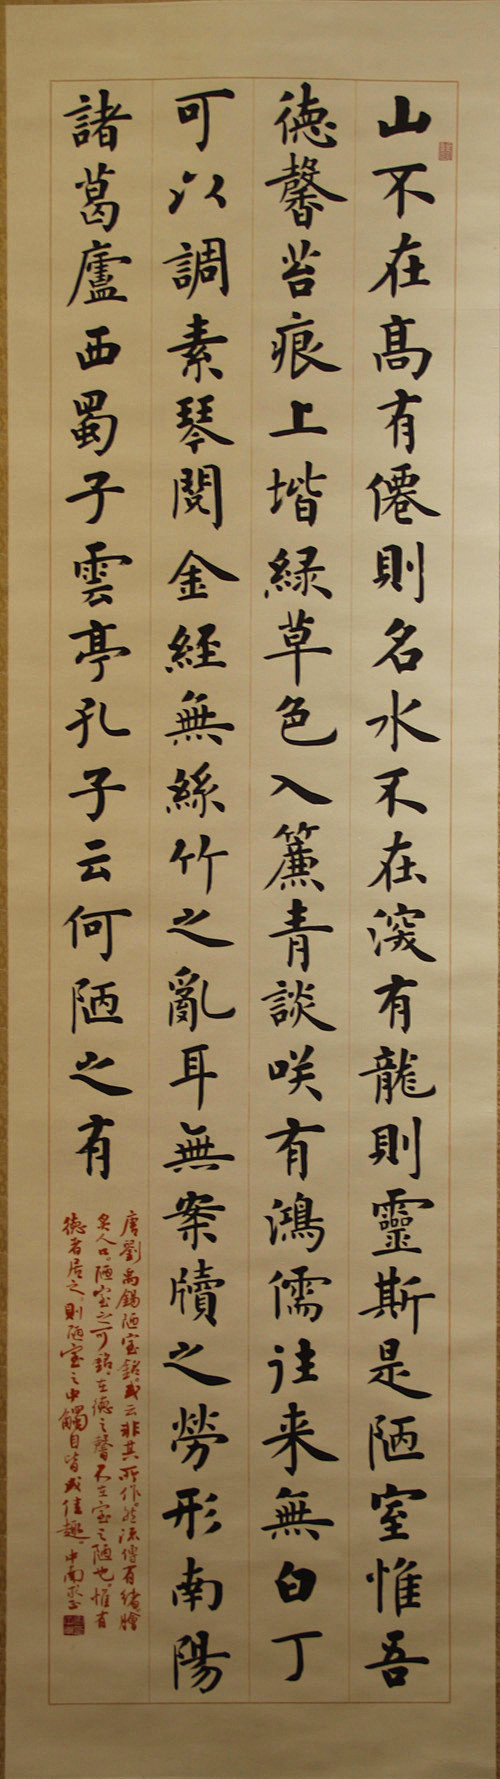 山不在髙有僊則名水不在深有龍則靈斯是陋室惟吾
徳馨苔痕上堦緑草色入簾青談咲有鴻儒往来無白丁
可以調素琴閱金經無絲竹之亂耳無案牘之勞形南陽
諸葛廬西蜀子雲亭孔子云何陋之有
唐劉禹錫陋室銘或云非其所作然流傳有緒膾
炙人口陋室之可銘在徳之馨不在室之陋也惟有
徳者居之則陋室之中觸目皆成佳趣 中南